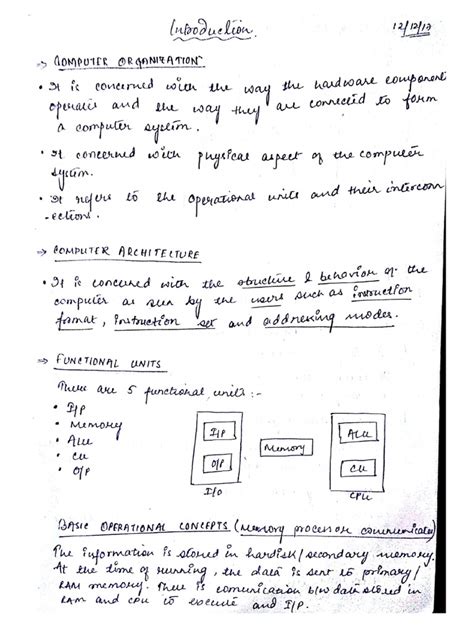 Introduction.
12/12/17
⇒ COMPUTER ORGANIZATION
• It is concerned with the way the hardware component
operates and the way they are connected to form
a computer system.
• It concerned with physical aspect of the computer
system.
• It refers to the operational units and their interconn
-ections.
⇒ COMPUTER ARCHITECTURE
• It is concerned with the structure & behavior of the
computer as seen by the users such as instruction
format, instruction set and addressing modes.
⇒ FUNCTIONAL UNITS
There are 5 functional units :-
• I/P
• Memory
• ALU
• CU
• O/P
I/P
O/P
I/O
Memory
ALU
CU
CPU
BASIC OPERATIONAL CONCEPTS (Memory processor communicates)
The information is stored in hardisk/secondary memory.
At the time of running, the data is sent to primary/
RAM memory. There is comunication b/w data stored in
RAM and CPU to execute and I/P.